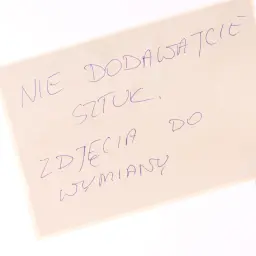 NIE DODAWAJCIE
SZTUK.
ZDJĘCIA DO
WYMIANY